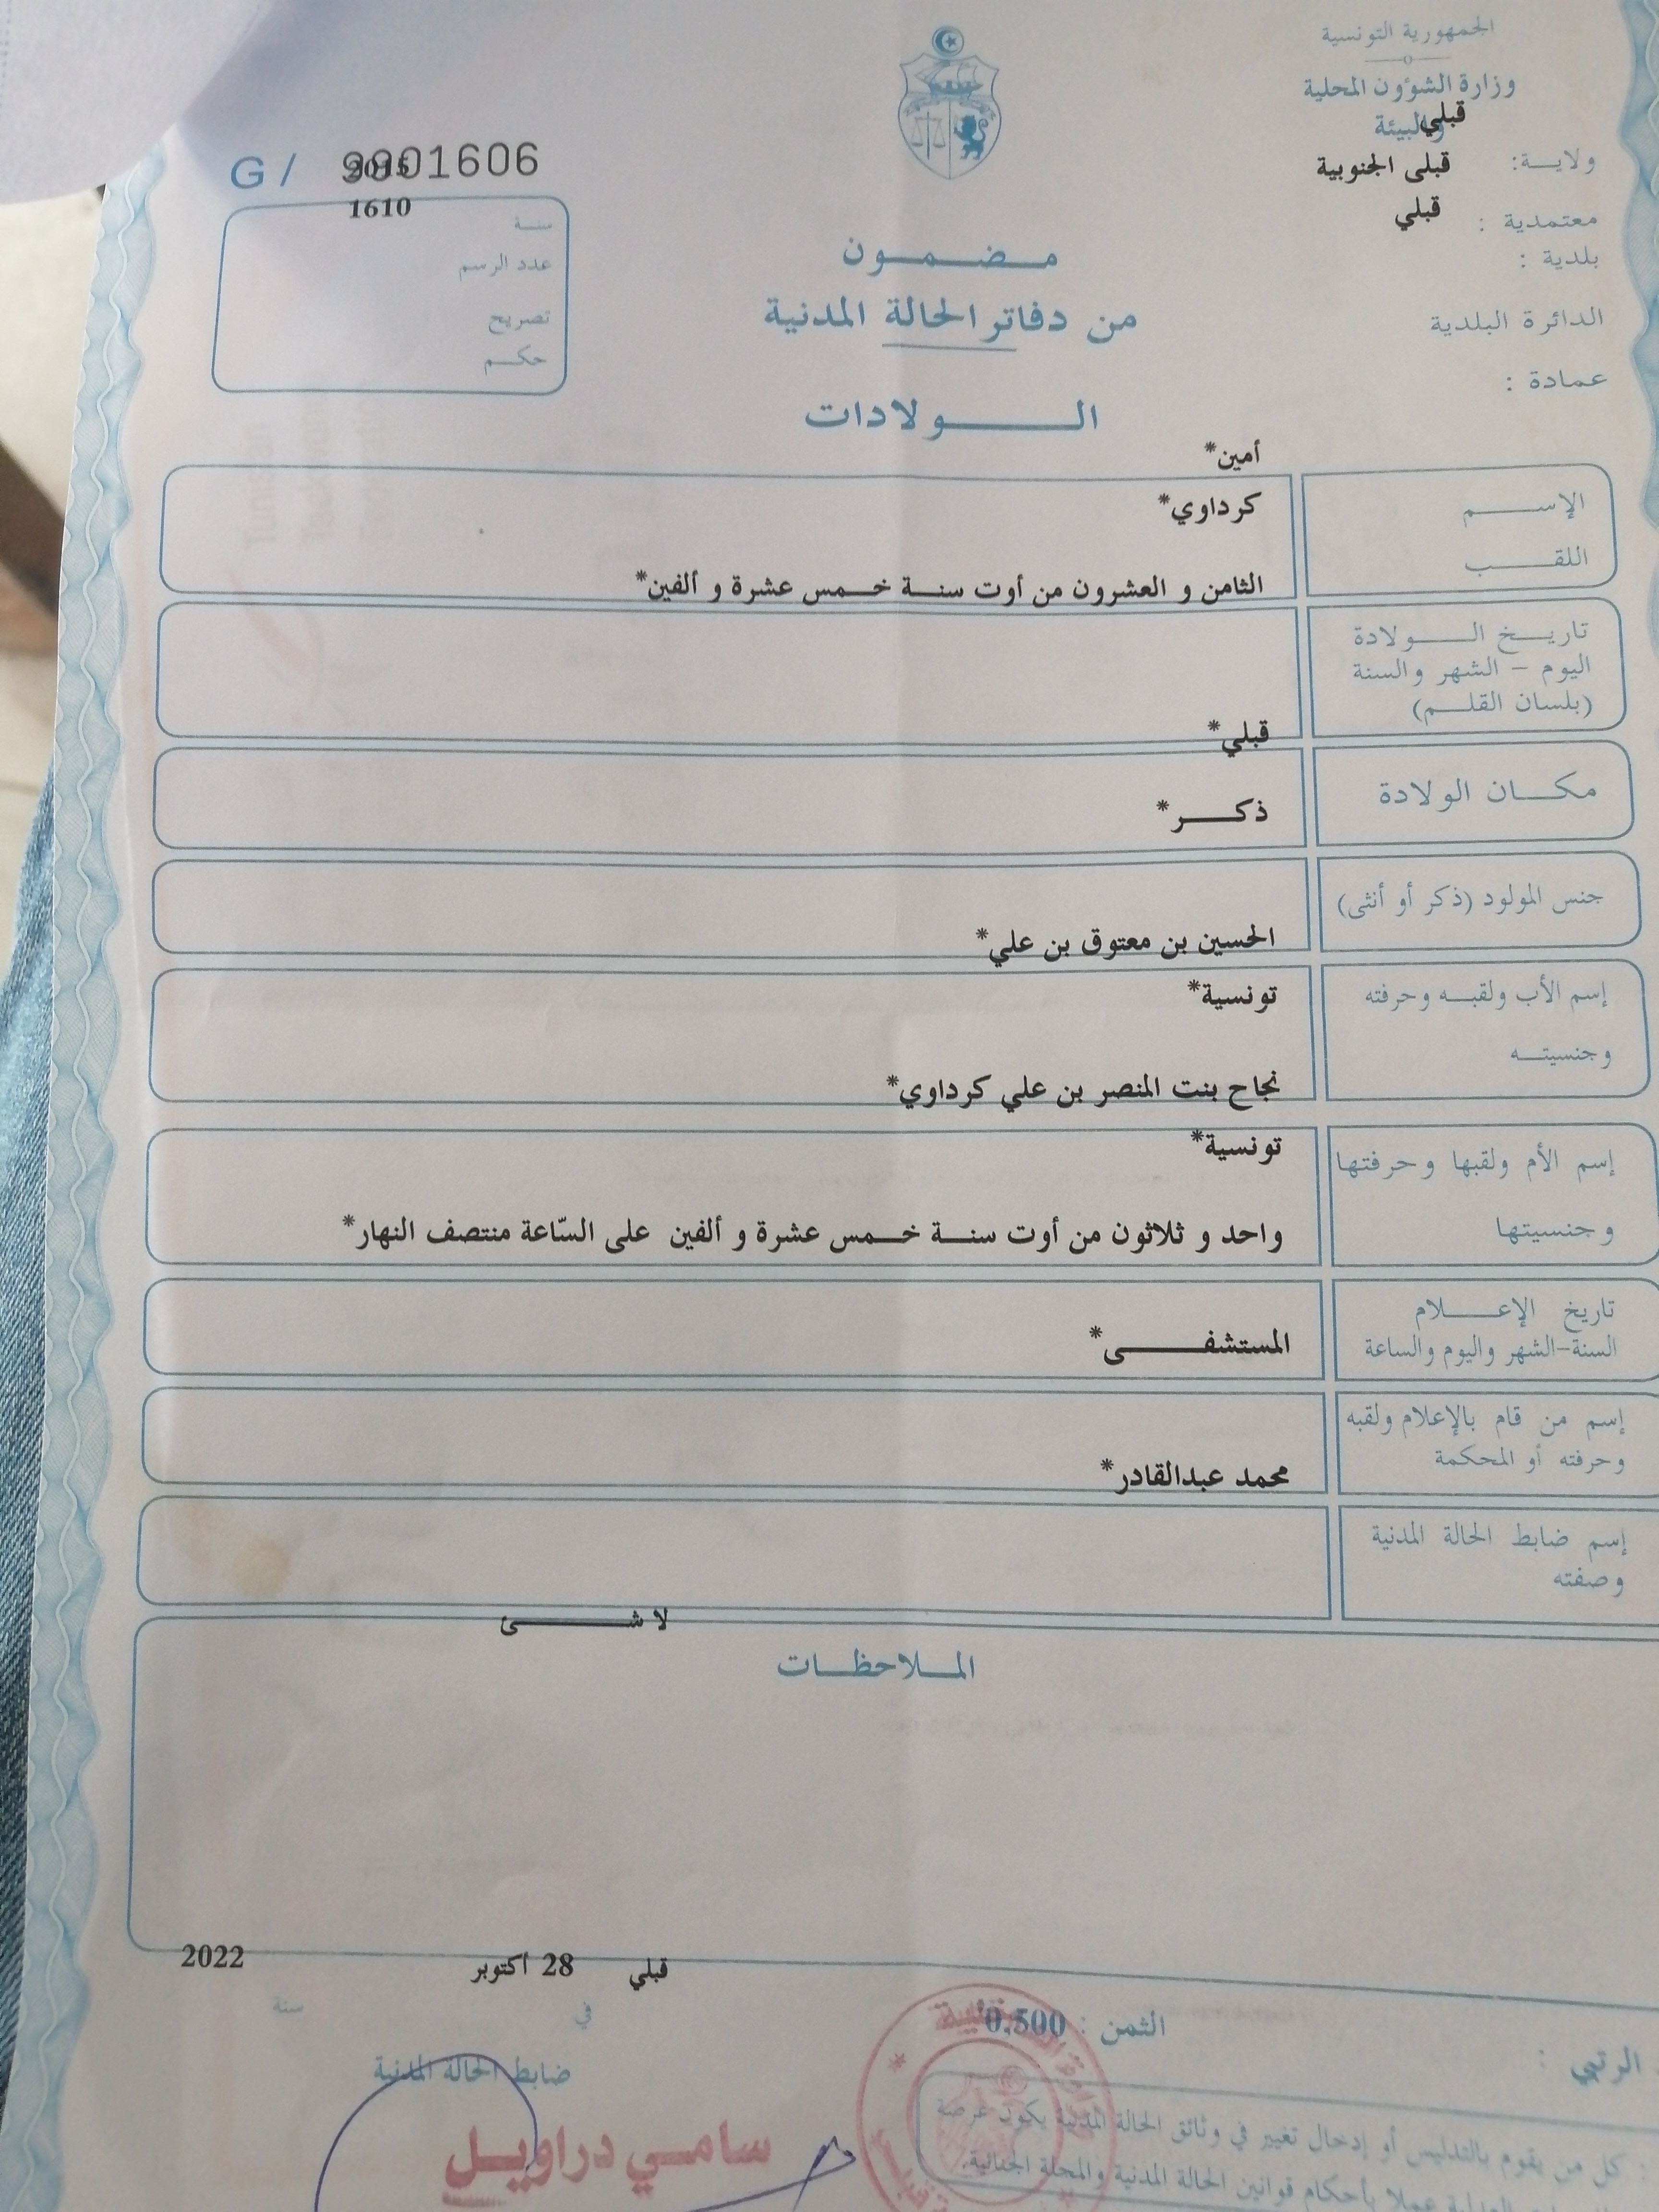 الجمهورية التونسية
وزارة الشؤون المحلية
والبيئة
قبلي
ولايــة: قبلى الجنوبية
معتمدية : قبلي
بلدية :
الدائرة البلدية
عمادة :
G/ 9901606
2015
1610
سنـة
عدد الرسم
تصريح
حكــم
مــضــمــون
من دفاتر الحالة المدنية
الـــولادات
أمين*
الإســـم كرداوي*
اللقــب
الثامن و العشرون من أوت سنـة خـمس عشرة و ألفين*
تاريـخ الـــولادة
اليوم - الشهر والسنة
(بلسان القلـم)
قبلي*
مكــان الولادة
ذكــر*
جنس المولود (ذكر أو أنثى)
الحسين بن معتوق بن علي*
إسم الأب ولقبـه وحرفته
تونسية*
وجنسيتــه
نجاح بنت المنصر بن علي كرداوي*
تونسية*
إسم الأم ولقبها وحرفتها
وجنسيتها
واحد و ثلاثون من أوت سنـة خـمس عشرة و ألفين على السّاعة منتصف النهار*
تاريخ الإعــلام
السنة-الشهر واليوم والساعة
المستشفـــى*
إسم من قام بالإعلام ولقبه
وحرفته أو المحكمة
محمد عبدالقادر*
إسم ضابط الحالة المدنية
وصفته
لا شـــئ
المــلاحظــات
قبلي 28 أكتوبر 2022
في سنة
الثمن : 0,500
الرتبي :
ضابط الحالة المدنية
سامي دراويل
: كل من يقوم بالتدليس أو إدخال تغيير في وثائق الحالة المدنية يكون عرضة
عملا بأحكام قوانين الحالة المدنية والمجلة الجنائية.